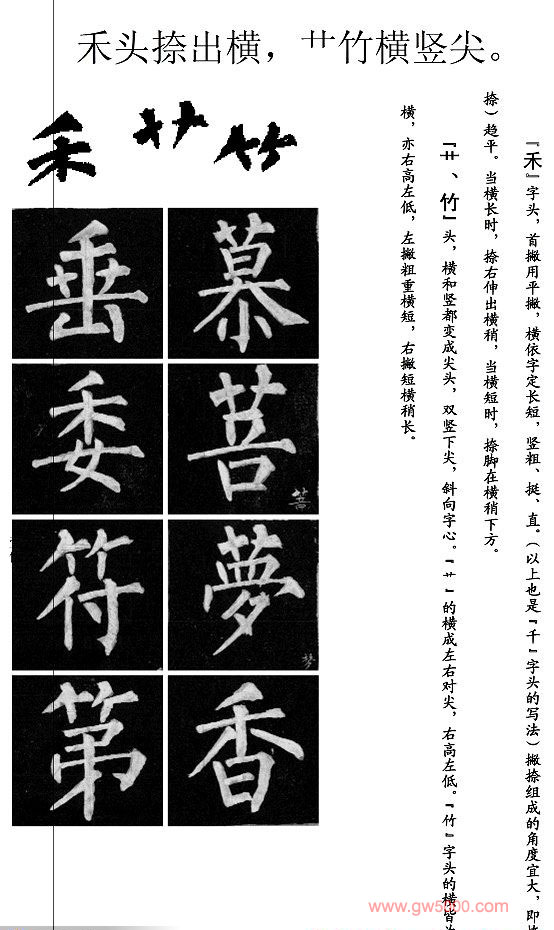 禾头捺出横，艹竹横竖尖。
禾 艹 竹
『禾』字头，首撇用平撇，横依字定长短，竖粗、挺、直。（以上也是『千』字头的写法）撇捺组成的角度宜大，即
捺）趋平。当横长时，捺右伸出横稍，当横短时，捺脚在横稍下方。
『艹、竹』头，横和竖都变成尖头，双竖下尖，斜向字心。『艹』的横成左右对尖，右高左低。『竹』字头的横皆为
横，亦右高左低，左撇粗重横短，右撇短横稍长。
垂 慕
委 菩
菩
符 夢
梦
第 香
www.gw5000.com